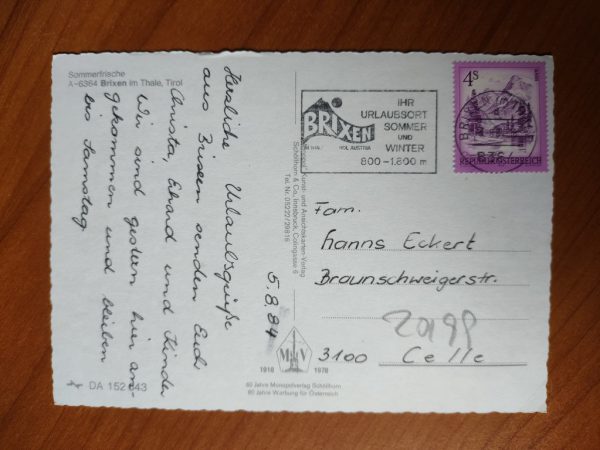 Sommerfrische
A-6364 Brixen im Thale, Tirol
Herzliche Urlaubsgrüße
aus Brixen senden Euch
Christa, Erhard und Kinder
Wir sind gestern hier an-
gekommen und bleiben
bis Samstag.
5.8.84
DA 152 643
Schöllhorn & Co., Innsbruck,
Tel. Nr. 05222/29816
1918 MV 1978
60 Jahre Monopolverlag Schöllhorn
60 Jahre Werbung für Österreich
BRIXEN
IM THALE TIROL AUSTRIA
IHR
URLAUBSORT
SOMMER
UND
WINTER
800-1.800 m
4s
REPUBLIK ÖSTERREICH
6364
Fam.
Hanns Eckert
Braunschweigerstr.
20199
3100 Celle